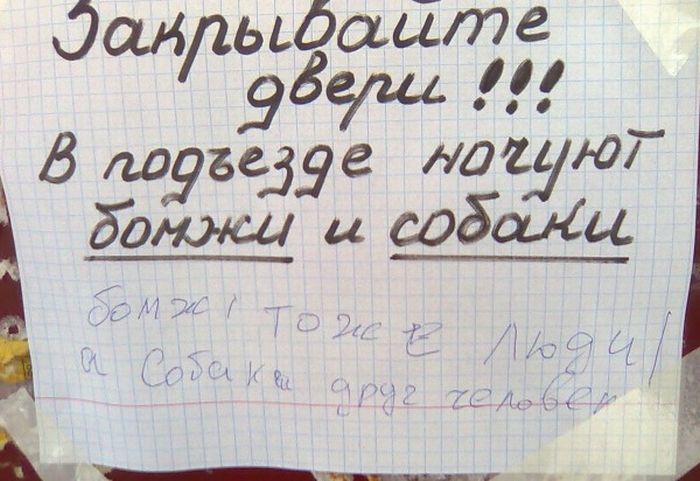 Закрывайте
двери !!!
В подъезде ночуют
бомжи и собаки
бомжі тоже люди
а собаки друг человек